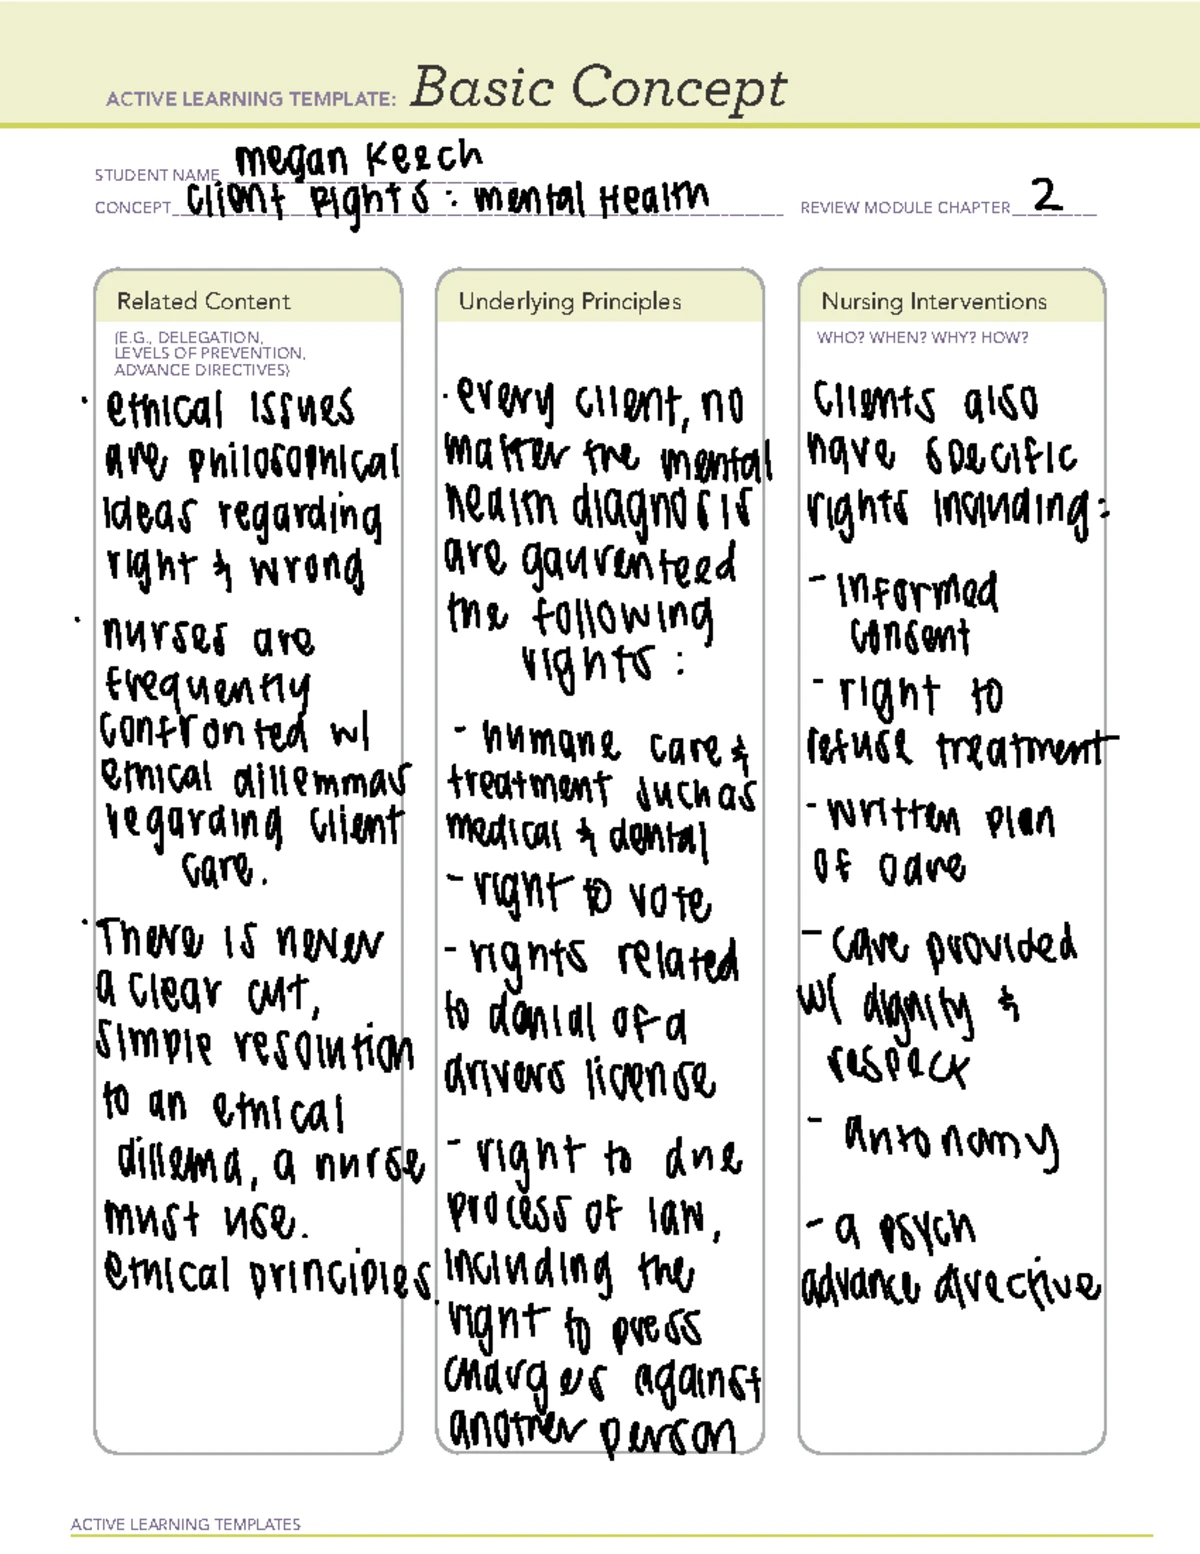 ACTIVE LEARNING TEMPLATE: Basic Concept
STUDENT NAME megan Keech
CONCEPT Client Rights : mental Health REVIEW MODULE CHAPTER 2
Related Content
(E.G., DELEGATION,
LEVELS OF PREVENTION,
ADVANCE DIRECTIVES)
· ethical issues
are philosophical
ideas regarding
right & wrong
· nurses are
frequently
confronted w/
ethical dillemmas
regarding client
care.
· There is never
a clear cut,
simple resolution
to an ethical
dillema, a nurse
must use.
ethical principles.
Underlying Principles
· every client, no
matter the mental
health diagnosis
are gaurenteed
the following
rights :
- humane care &
treatment such as
medical & dental
- right to vote
- rights related
to denial of a
drivers license
- right to due
process of law,
including the
right to press
charges against
another person
Nursing Interventions
WHO? WHEN? WHY? HOW?
Clients also
have specific
rights including:
- informed
consent
- right to
refuse treatment
- written plan
of care
- care provided
w/ dignity &
respect
- autonomy
- a psych
advance directive
ACTIVE LEARNING TEMPLATES